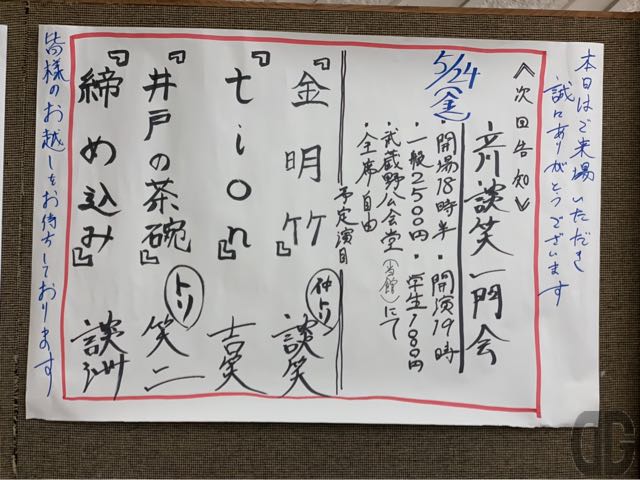 本日はご来場いただき
誠にありがとうございます
《次回告知》
立川談笑一門会
5/24(金)
・開場18時半・開演19時
・一般2500円・学生100円
・武蔵野公会堂(当館)にて
・全席自由
予定演目
『金明竹』 仲トリ 談笑
『tion』 吉笑
『井戸の茶碗』 トリ 笑二
『締め込み』 談洲
皆様のお越しをお待ちしております